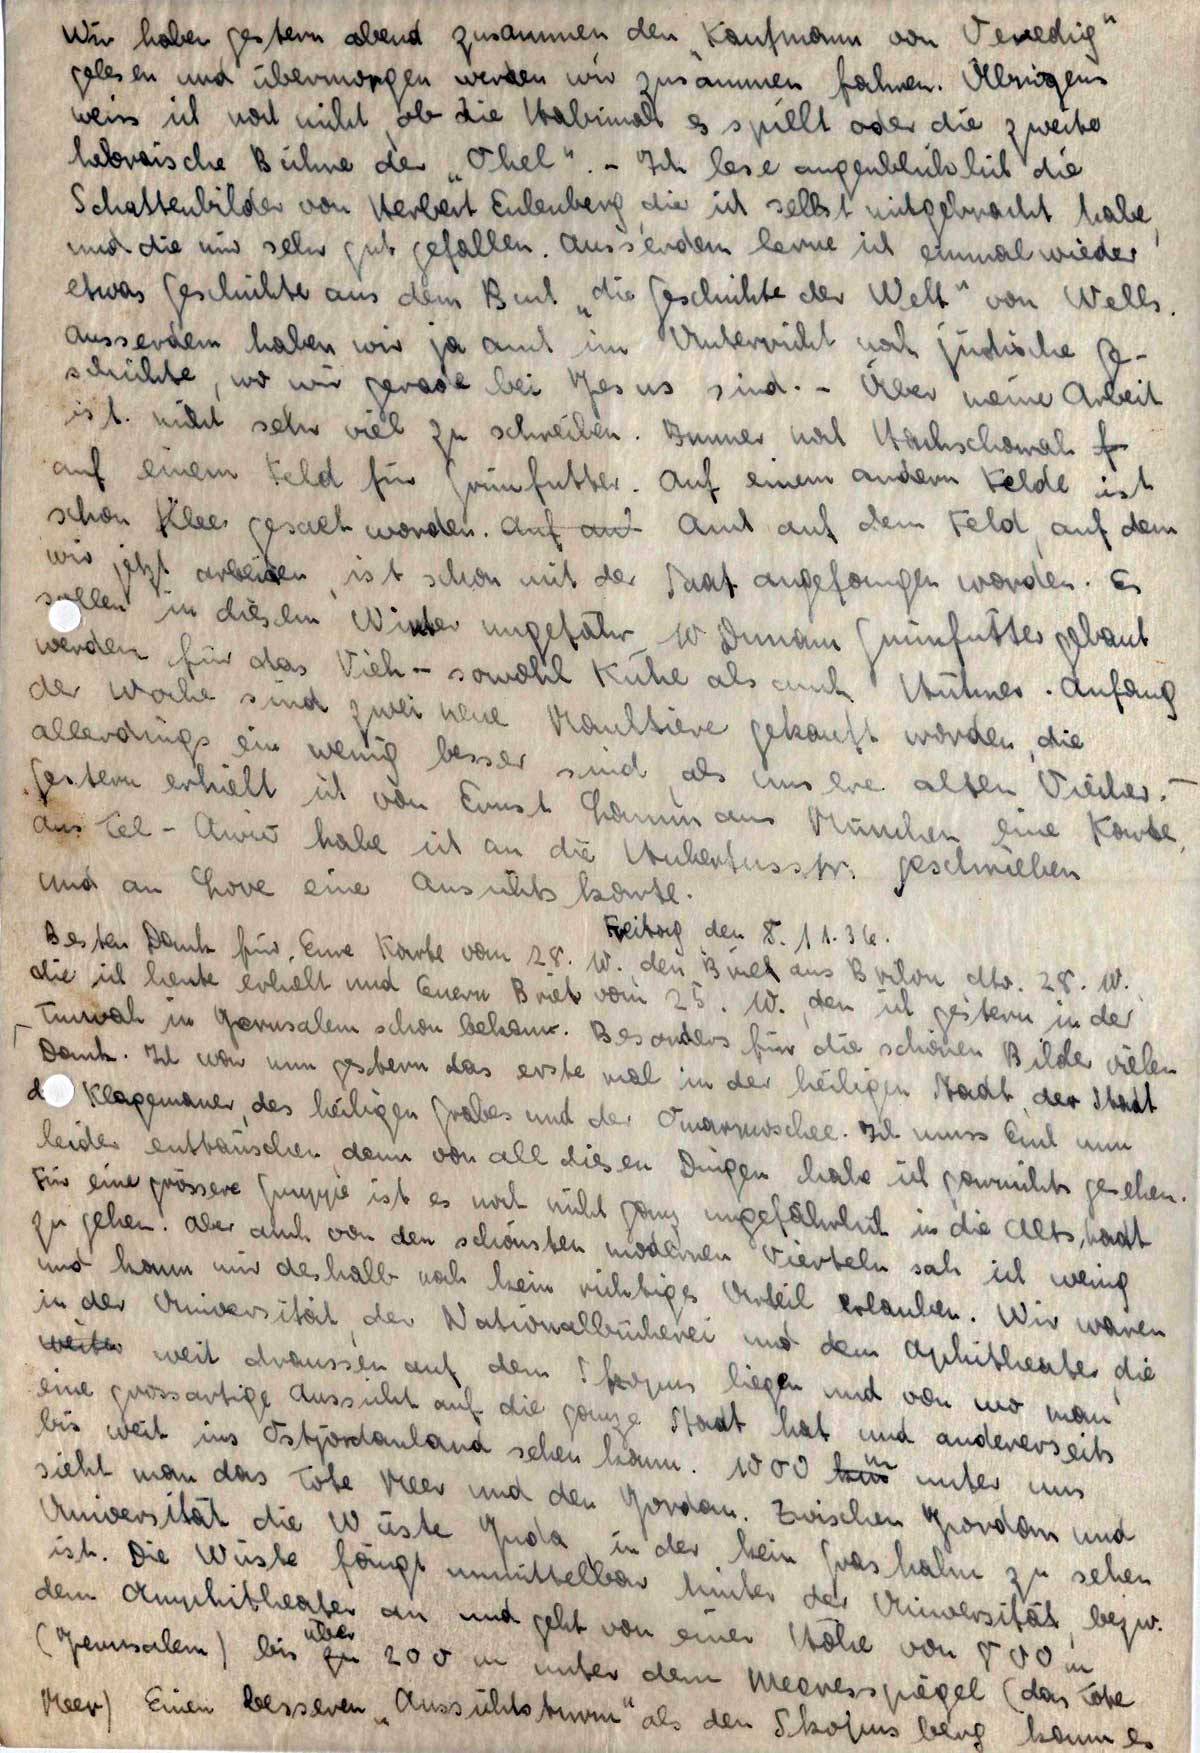 Wir haben gestern abend zusammen den „Kaufmann von Venedig"
gelesen und übermorgen werden wir zusammen fahren. Übrigens
weiss ich noch nicht, ob die Habimah es spielt oder die zweite
hebräische Bühne der „Ohel". - Ich lese augenblicklich die
Schattenbilder von Herbert Eulenberg, die ich selbst mitgebracht habe,
und die mir sehr gut gefallen. Ausserdem lerne ich einmal wieder
etwas Geschichte aus dem Buch „die Geschichte der Welt" von Wells.
Ausserdem haben wir ja auch im Unterricht noch jüdische Ge-
schichte, wo wir gerade bei Jesus sind. - Über meine Arbeit
ist nicht sehr viel zu schreiben. Immer noch Hachscharah
auf einem Feld für Grünfutter. Auf einem andern Felde ist
schon Klee gesaet worden. Auf auch Auch auf dem Feld, auf dem
wir jetzt arbeiten, ist schon mit der Saat angefangen worden. Es
sollen in diesem Winter ungefähr 10 Dunam Grünfutter gebaut
werden für das Vieh - sowohl Kühe als auch Hühner. Anfang
der Woche sind zwei neue Maultiere gekauft worden, die
allerdings ein wenig besser sind, als unsere alten Viecher. -
Gestern erhielt ich von Ernst aus München eine Karte,
Aus Tel-Awiw habe ich an die Hubertusstr. geschrieben
und an Lore eine Ansichtskarte.
Freitag den 8.11.36.
Besten Dank für Eure Karte vom 28. 10. den Brief aus Brilon dto. 28. 10.,
die ich heute erhielt und Euern Brief vom 25. 10., den ich gestern in der
Tnuvah in Jerusalem schon bekam. Besonders für die schönen Bilder vielen
Dank. Ich war nun gestern das erste mal in der heiligen Stadt, der Stadt
d Klagemauer, des heiligen Grabes und der Omarmoschee. Ich muss Euch nun
leider enttäuschen, denn von all diesen Dingen habe ich garnichts gesehen.
Für eine grössere Gruppe ist es noch nicht ganz ungefährlich in die Altstadt
zu gehen. Aber auch von den schönsten modernen Vierteln sah ich wenig
und kann mir deshalb noch kein richtiges Urteil erlauben. Wir waren
in der Universität, der Nationalbücherei und dem Aphitheater, die
weiter weit draussen auf dem Skopus liegen und von wo man
eine grossartige Aussicht auf die ganze Stadt hat und andererseits
bis weit ins Ostjordanland sehen kann. 1000 km m unter uns
sieht man das Tote Meer und den Jordan. Zwischen Jordan und
Universität die Wüste Juda, in der kein Grashalm zu sehen
ist. Die Wüste fängt unmittelbar hinter der Universität, bezw.
dem Amphitheater an und geht von einer Höhe von 800 m
(Jerusalem) bis zu über 200 m unter dem Meeresspiegel (das Tote
Meer) Einen besseren „Aussichtsturm" als den Skopusberg kann es